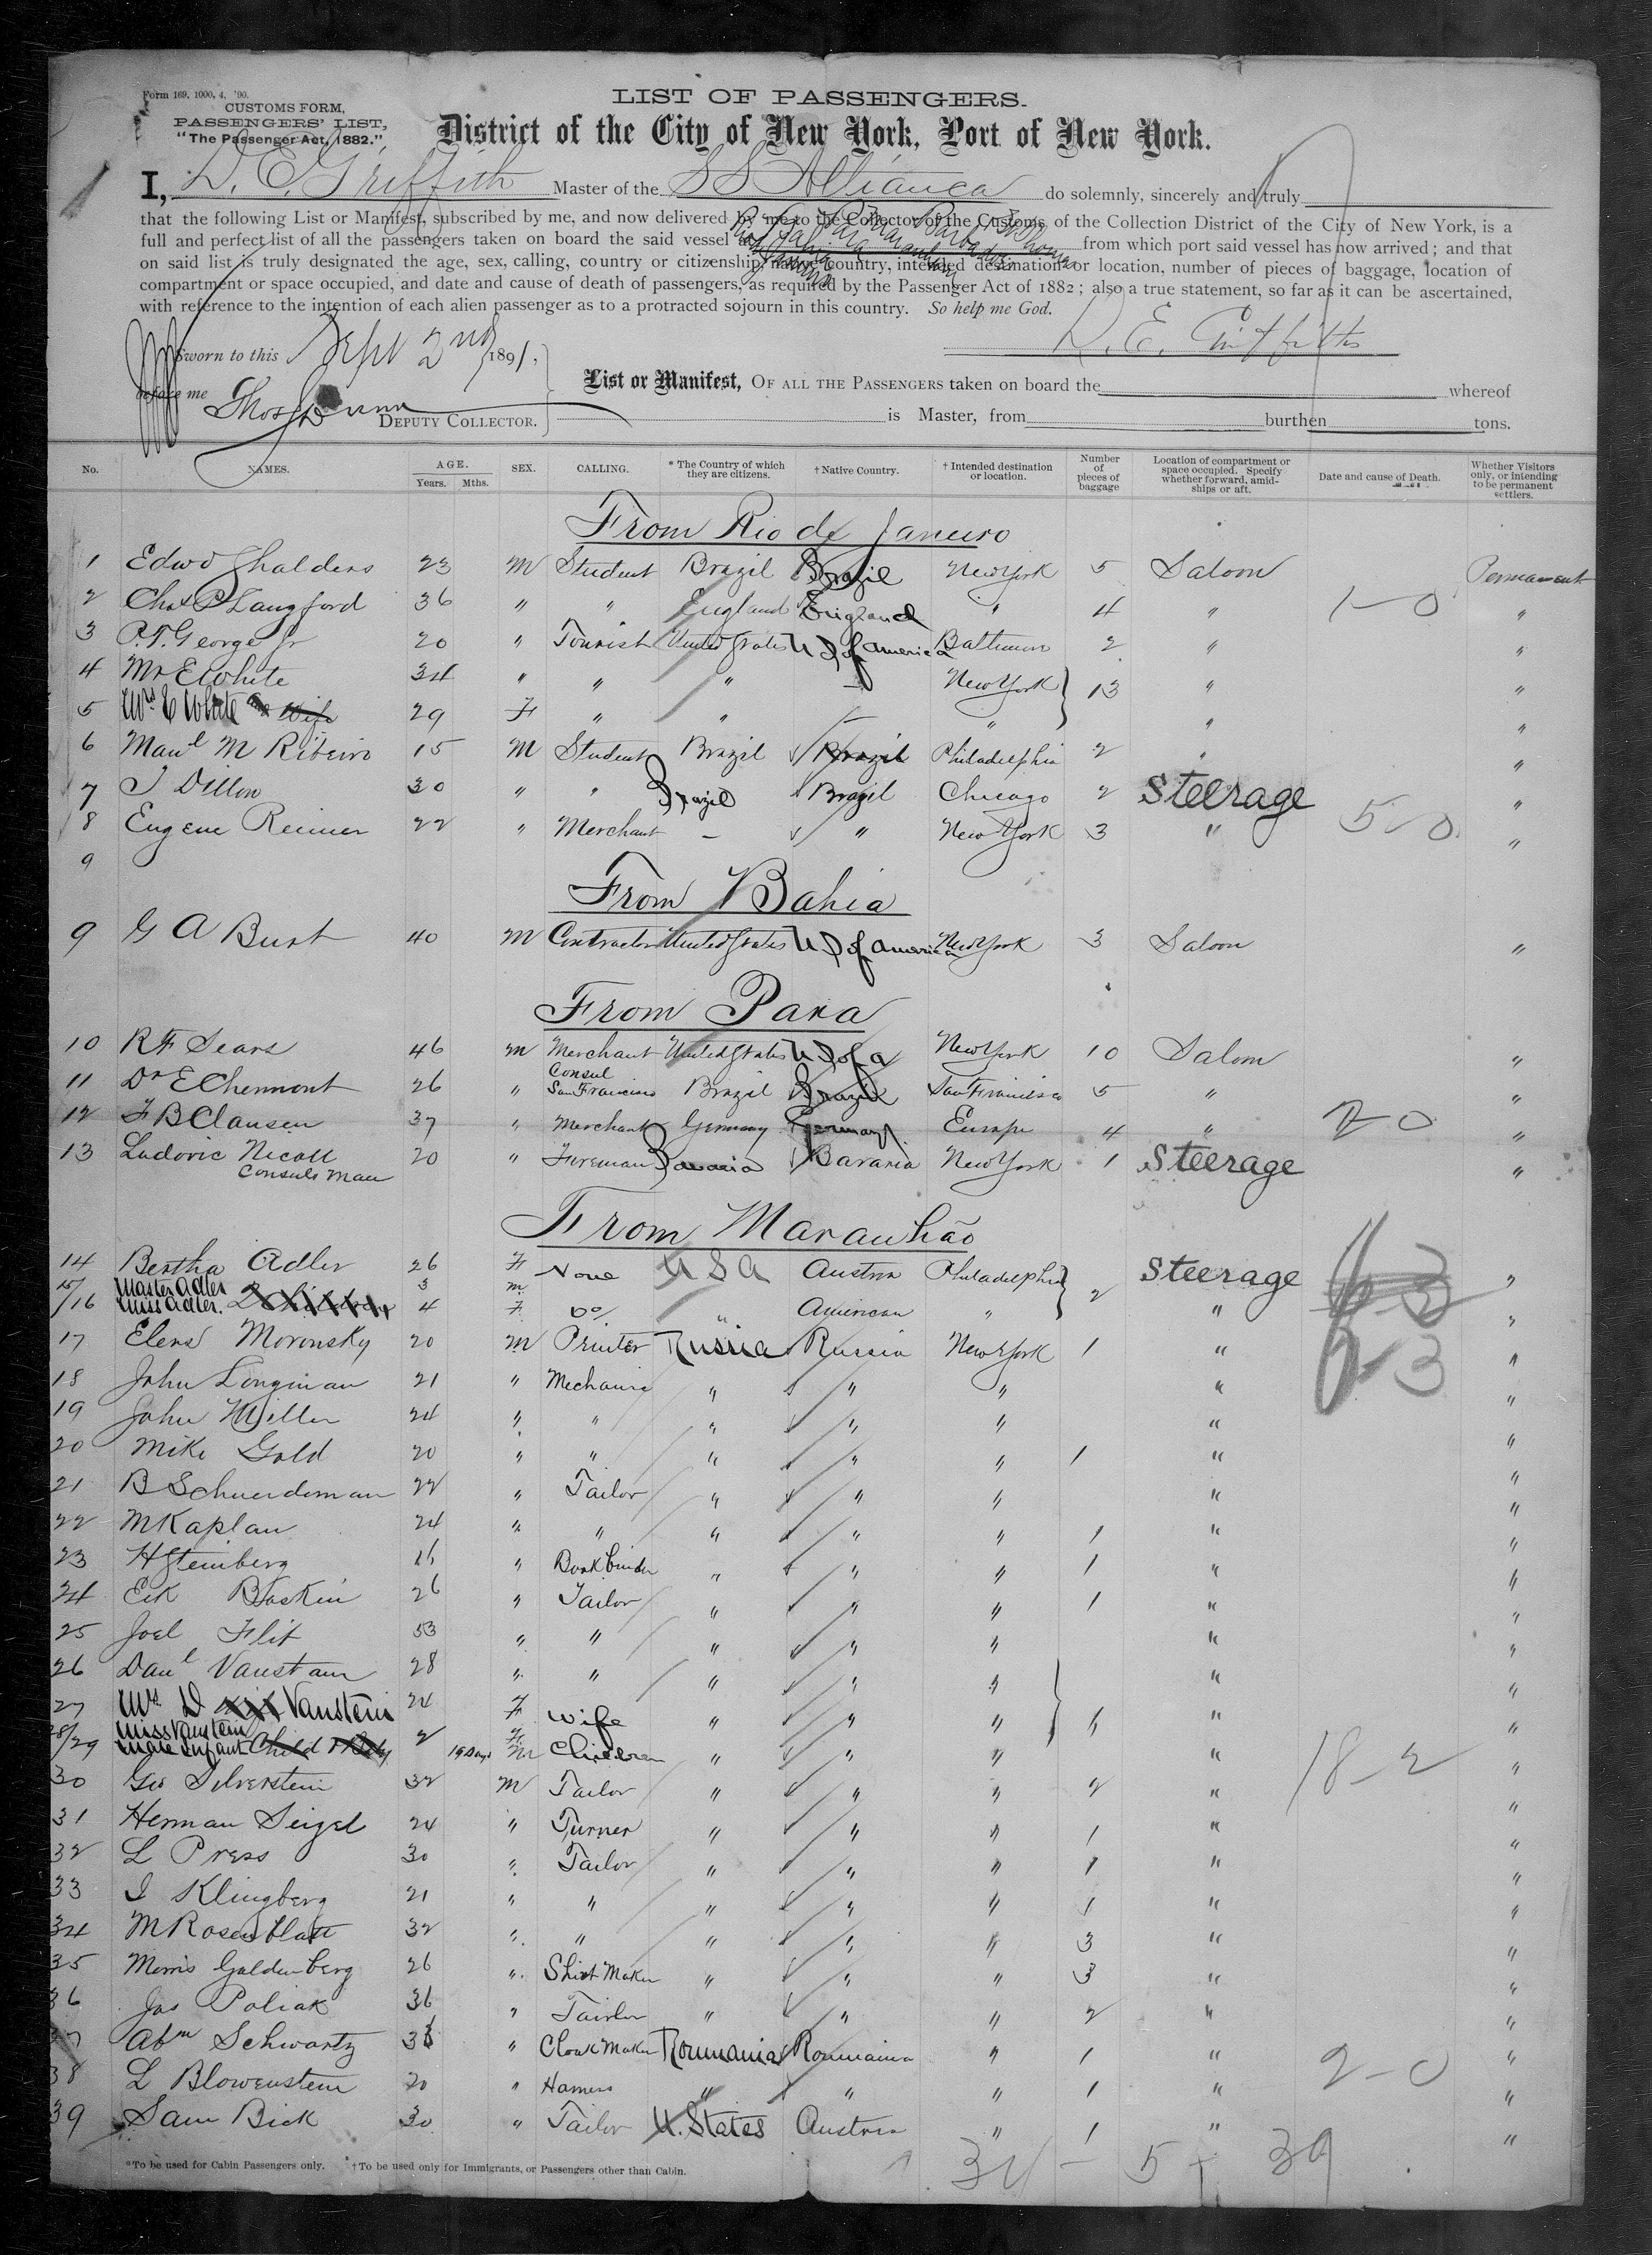 Form 169. 1000, 4, '90.
CUSTOMS FORM,
PASSENGERS' LIST,
"The Passenger Act, 1882."
LIST OF PASSENGERS.
District of the City of New York, Port of New York.
I, D. E. Griffith Master of the SS Allianca do solemnly, sincerely and truly
that the following List or Manifest, subscribed by me, and now delivered by me to the Collector of the Customs of the Collection District of the City of New York, is a
full and perfect list of all the passengers taken on board the said vessel at Rio Bahia Para Maranham Barbados St Thomas from which port said vessel has now arrived; and that
on said list is truly designated the age, sex, calling, country or citizenship, native country, intended destination or location, number of pieces of baggage, location of
compartment or space occupied, and date and cause of death of passengers, as required by the Passenger Act of 1882; also a true statement, so far as it can be ascertained,
with reference to the intention of each alien passenger as to a protracted sojourn in this country. So help me God.
D. E. Griffith
Sworn to this Sept 2nd 1891.
before me Thos Dunn
DEPUTY COLLECTOR.
List or Manifest, OF ALL THE PASSENGERS taken on board the whereof
is Master, from burthen tons.
No. NAMES. AGE. Years. Mths. SEX. CALLING. * The Country of which they are citizens. † Native Country. † Intended destination or location. Number of pieces of baggage Location of compartment or space occupied. Specify whether forward, amidships or aft. Date and cause of Death. Whether Visitors only, or intending to be permanent settlers.
From Rio de Janeiro
1 Edwd Chalders 23 M Student Brazil Brazil New York 5 Saloon Permanent
2 Chas P Langford 36 " " England England " 4 " 1-0 "
3 P.T. George Jr 20 " Tourist United States U S of America Baltimore 2 " "
4 Mr E White 34 " " " New York 13 " "
5 Mrs E White Wife 29 F " " " " "
6 Manl M Ribeiro 15 M Student Brazil Brazil Philadelphia 2 " "
7 J Dillon 30 " " Brazil Brazil Chicago 2 Steerage "
8 Eugene Reimer 22 " Merchant - " New York 3 " 5-0 "
9
From Bahia
9 G A Burt 40 M Contractor United States U S of America New York 3 Saloon "
From Para
10 R F Sears 46 M Merchant United States U S of A New York 10 Saloon "
11 Dr E Chermont 26 " Consul San Francisco Brazil Brazil San Francisco 5 " "
12 F B Clausen 37 " Merchant Germany Germany Europe 4 " 2-0 "
13 Ludovic Nicoll 20 " Fireman Bavaria Bavaria New York 1 Steerage "
Consuls Man
From Maranhão
14 Bertha Adler 26 F None U S A Austria Philadelphia 2 Steerage "
15/ Master Adler 3 m
/16 Miss Adler. 4 F Do/ " American " " "
17 Elend Moronsky 20 M Printer Russia Russia New York 1 " 6-3 "
18 John Longman 21 " Mechanic " " " " "
19 John Miller 24 " " " " " " "
20 Mike Gold 20 " " " " " 1 " "
21 B Schneideman 22 " Tailor " " " " "
22 M Kaplan 24 " " " " " 1 " "
23 H Steinberg 16 " Bookbinder " " " 1 " "
24 Eik Baskin 26 " Tailor " " " 1 " "
25 Joel Flit 53 " " " " " " "
26 Danl Vanstain 28 " " " " " " "
27 Mrs D Vanstein 24 F Wife " " " 1 " "
28/ Miss Vanstein 2 F
/29 Male Infant Child & Baby 19 Days M Children " " " " "
30 Geo Silverstein 32 M Tailor " " " 2 " 18-2 "
31 Herman Seigel 24 " Turner " " " 1 " "
32 L Press 30 " Tailor " " " 1 " "
33 I Klingberg 21 " " " " " 1 " "
34 M Rosenblatt 32 " " " " " 3 " "
35 Morris Goldenberg 26 " Shirt Maker " " " 3 " "
36 Jos Poliak 36 " Tailor " " " 2 " "
37 Abm Schwartz 33 " Cloak Maker Roumania Roumania " 1 " "
38 L Blowenstein 20 " Harness " " " 1 " 2-0 "
39 Sam Bick 30 " Tailor U. States Austria " 1 " "
*To be used for Cabin Passengers only. †To be used only for Immigrants, or Passengers other than Cabin.
34 - 5 - 39